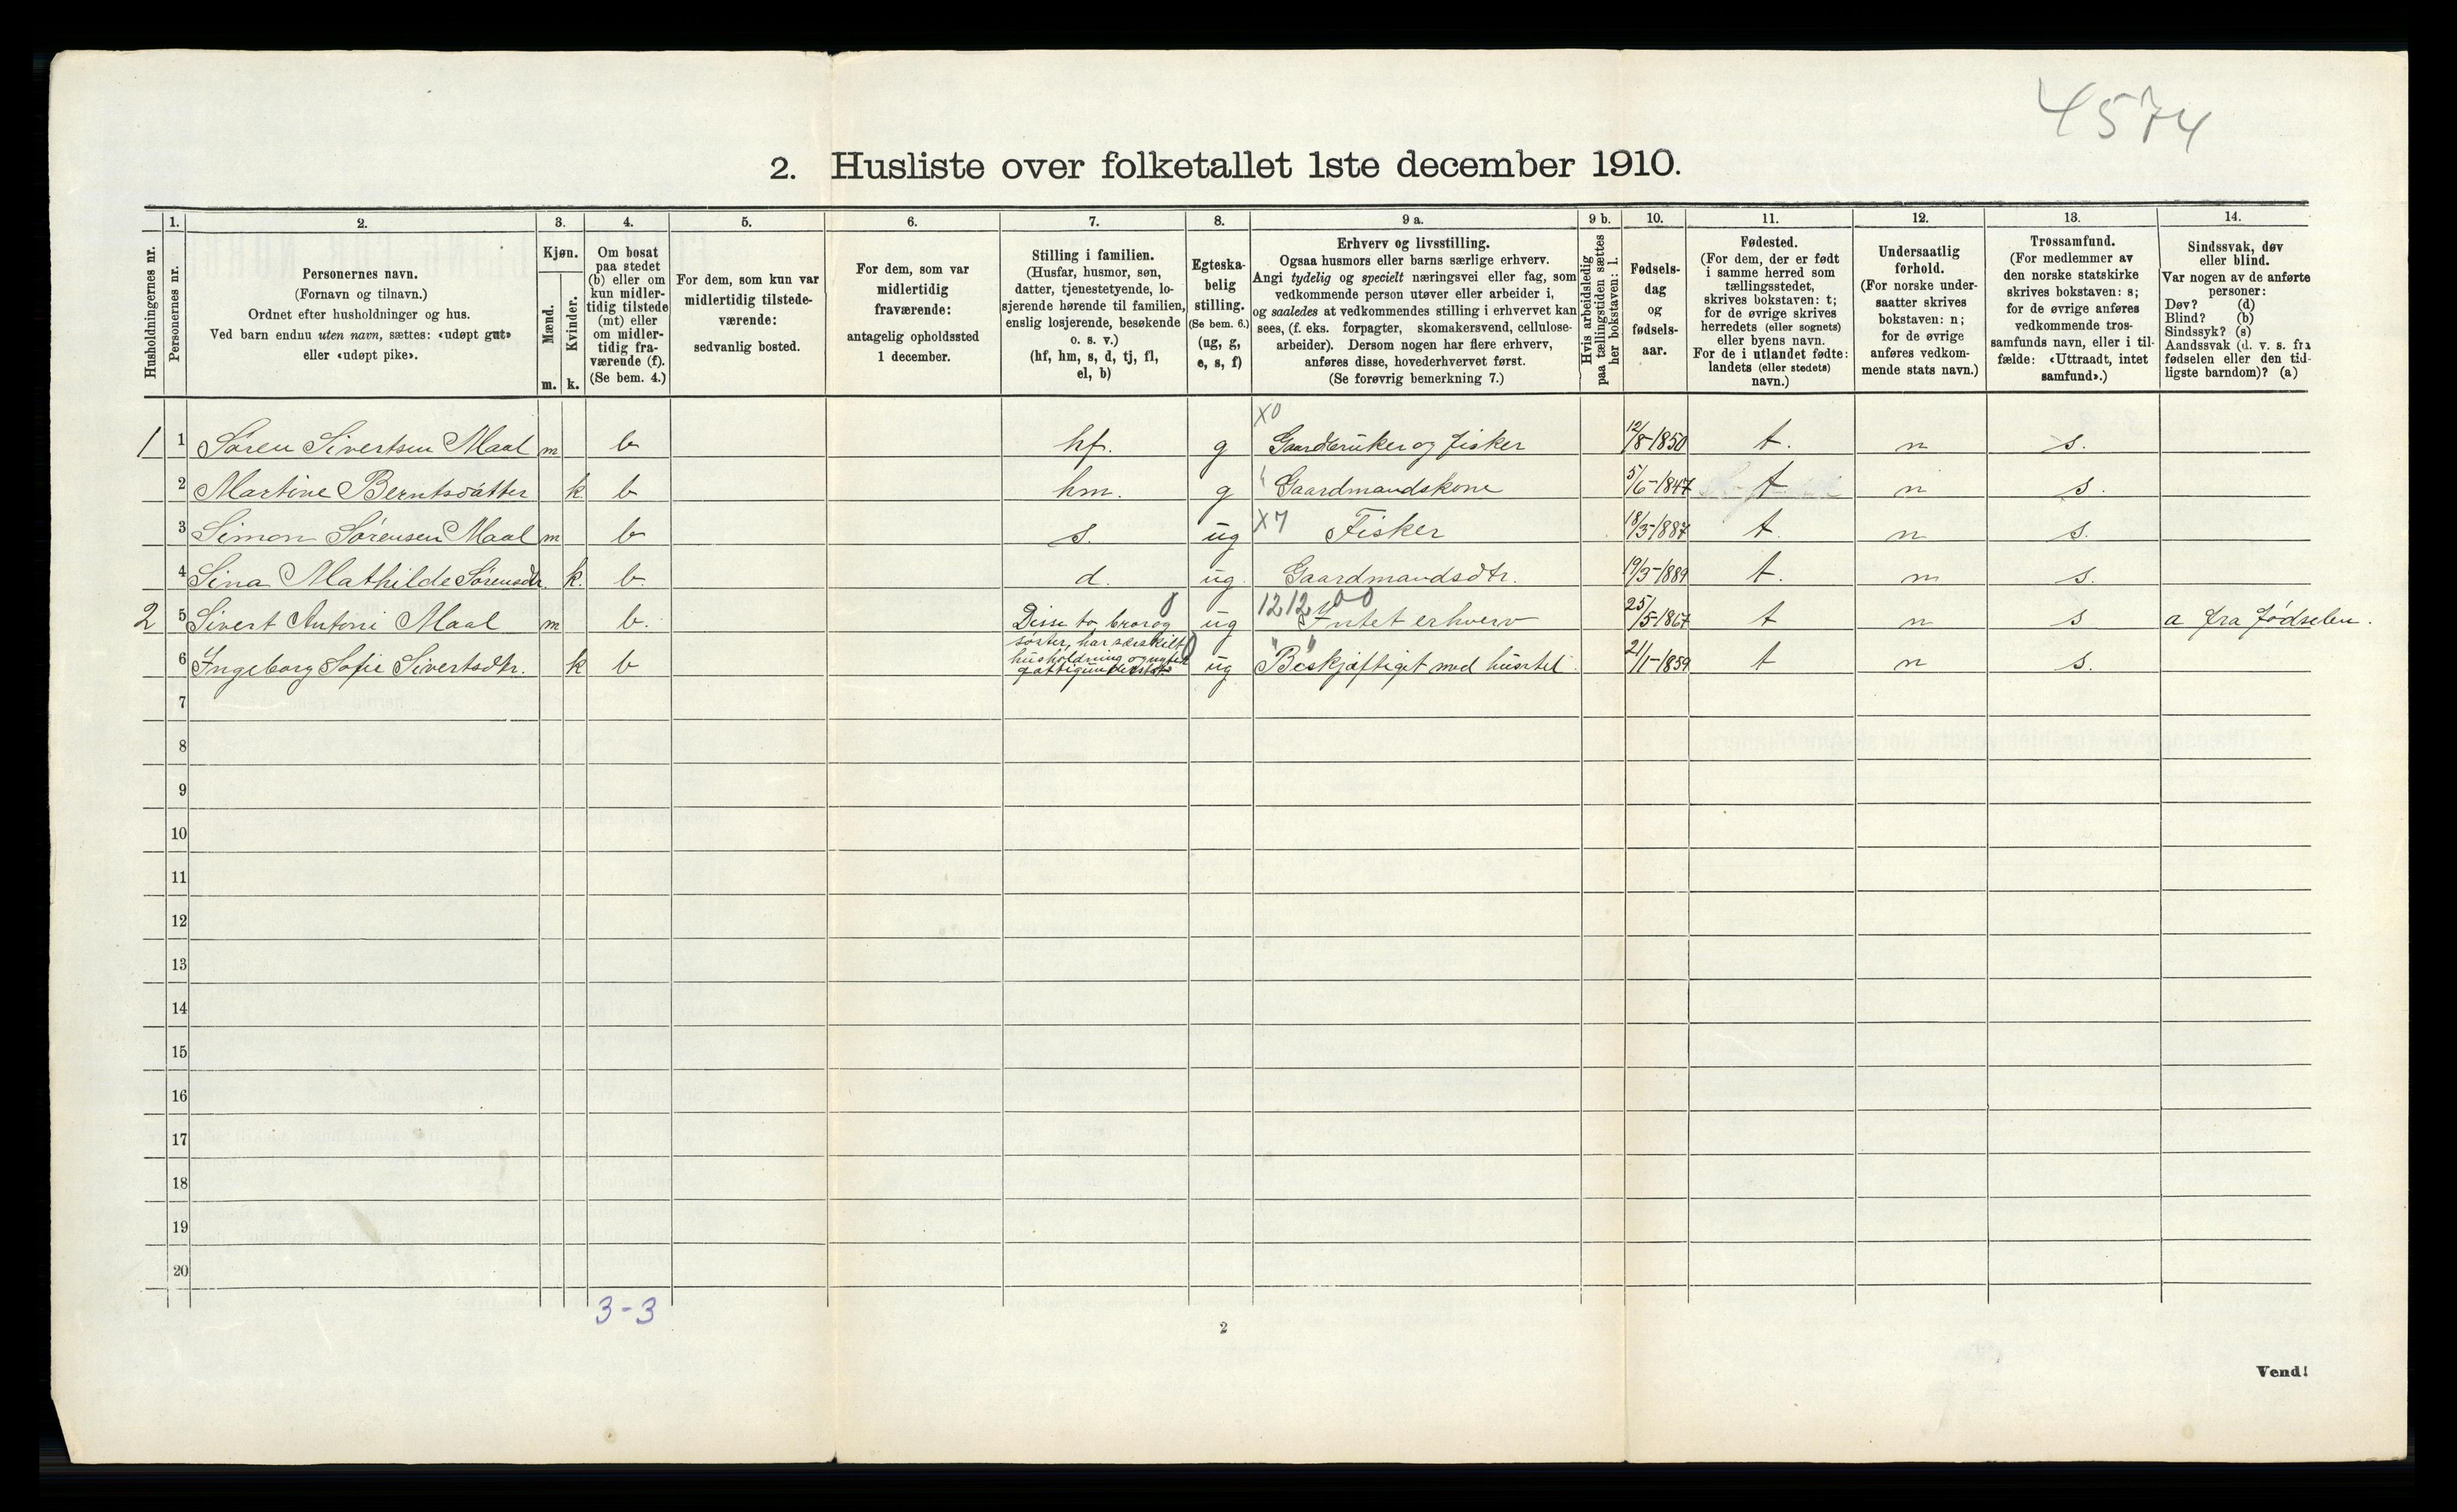 4574
2. Husliste over folketallet 1ste december 1910.
Husholdningernes nr.
1. Personernes nr.
2. Personernes navn.
(Fornavn og tilnavn.)
Ordnet efter husholdninger og hus.
Ved barn endnu uten navn, sættes: «udøpt gut»
eller «udøpt pike».
3. Kjøn.
Mænd. m.
Kvinder. k.
4. Om bosat
paa stedet
(b) eller om
kun midler-
tidig tilstede
(mt) eller
om midler-
tidig fra-
værende (f).
(Se bem. 4.)
5. For dem, som kun var
midlertidig tilstede-
værende:
sedvanlig bosted.
6. For dem, som var
midlertidig
fraværende:
antagelig opholdssted
1 december.
7. Stilling i familien.
(Husfar, husmor, søn,
datter, tjenestetyende, lo-
sjerende hørende til familien,
enslig losjerende, besøkende
o. s. v.)
(hf, hm, s, d, tj, fl,
el, b)
8. Egteska-
belig
stilling.
(Se bem. 6.)
(ug, g,
e, s, f)
9 a. Erhverv og livsstilling.
Ogsaa husmors eller barns særlige erhverv.
Angi tydelig og specielt næringsvei eller fag, som
vedkommende person utøver eller arbeider i,
og saaledes at vedkommendes stilling i erhvervet kan
sees, (f. eks. forpagter, skomakersvend, cellulose-
arbeider). Dersom nogen har flere erhverv,
anføres disse, hovederhvervet først.
(Se forøvrig bemerkning 7.)
9 b. Hvis arbeidsledig
paa tællingstiden sættes
her bokstaven: l.
10. Fødsels-
dag
og
fødsels-
aar.
11. Fødested.
(For dem, der er født
i samme herred som
tællingsstedet,
skrives bokstaven: t;
for de øvrige skrives
herredets (eller sognets)
eller byens navn.
For de i utlandet fødte:
landets (eller stedets)
navn.)
12. Undersaatlig
forhold.
(For norske under-
saatter skrives
bokstaven: n;
for de øvrige
anføres vedkom-
mende stats navn.)
13. Trossamfund.
(For medlemmer av
den norske statskirke
skrives bokstaven: s;
for de øvrige anføres
vedkommende tros-
samfunds navn, eller i til-
fælde: «Uttraadt, intet
samfund».)
14. Sindssvak, døv
eller blind.
Var nogen av de anførte
personer:
Døv? (d)
Blind? (b)
Sindssyk? (s)
Aandssvak (d. v. s. fra
fødselen eller den tid-
ligste barndom)? (a)
X0
1 1 Søren Sivertsen Maal m b hf. g Gaardbruker og fisker 12/8-1850 t. n s.
2 Martine Berntsdatter k b hm. g Gaardmandskone 5/6-1847 t n s.
3 Simon Sørensen Maal m b s. ug X7 Fisker 18/3-1887 t. n s.
4 Sina Mathilde Sørensdtr. k. b. d. ug. Gaardmandsdtr. 19/3-1889 t. n s.
2 5 Sivert Antoni Maal m b. Disse to bror og 0 ug 1212 Intet erhverv 25/5-1867 t n s a fra fødselen.
søster, har særskilt
husholdning og nyter
fattigunderstøt.
6 Ingeborg Sofie Sivertsdtr. k b ug " " Beskjæftiget med husstel. 21/1-1859 t n s.
7
8
9
10
11
12
13
14
15
16
17
18
19
20
3-3
2
Vend!